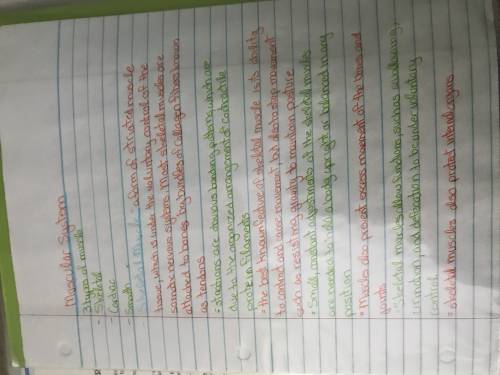 Muscular System
3 types of muscle
- Skeletal
- Cardiac
- Smooth
- Skeletal Muscle - a form of striated muscle
tissue, which is under the voluntary control of the
somatic nervous system. Most skeletal muscles are
attached to bones by bundles of collagen fibers known
as tendons
• Striations are obvious banding patterns, which are
due to the organized arrangement of contractile
protein in filaments
• The best known feature of skeletal muscle is its ability
to contract and cause movement, but also to stop movement
such as resisting gravity to maintain posture
• Small, constant adjustments of the skeletal muscles
are needed to hold a body upright or balanced in any
position
• Muscles also prevent excess movement of the bones and
joints
• Skeletal muscles allow functions such as swallowing,
urination, and defecation to be under voluntary
control
• Skeletal muscles also protect internal organs